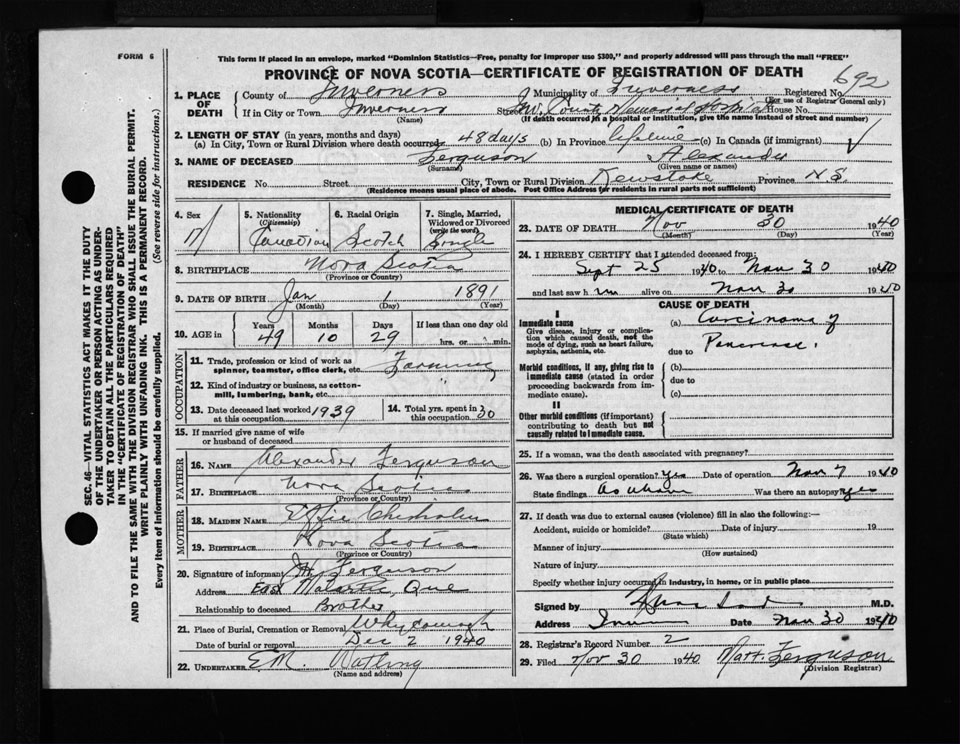 FORM 6
This form if placed in an envelope, marked "Dominion Statistics—Free, penalty for improper use $300," and properly addressed will pass through the mail "FREE"
PROVINCE OF NOVA SCOTIA—CERTIFICATE OF REGISTRATION OF DEATH
692
1. PLACE OF DEATH County of Inverness Municipality of Inverness Registered No.
(For use of Registrar General only)
If in City or Town Inverness Street County Memorial Hospital House No.
(Name) (If death occurred in a hospital or institution, give the name instead of street and number)
2. LENGTH OF STAY (in years, months and days)
(a) In City, Town or Rural Division where death occurred 48 days (b) In Province lifetime (c) In Canada (if immigrant)
3. NAME OF DECEASED Ferguson Alexander
(Surname) (Given name or names)
RESIDENCE No. Street City, Town or Rural Division Province N.S.
(Residence means usual place of abode. Post Office Address for residents in rural parts not sufficient)
4. Sex M 5. Nationality (Citizenship) Canadian 6. Racial Origin Scotch 7. Single, Married, Widowed or Divorced (write the word) Single
8. BIRTHPLACE Nova Scotia
(Province or Country)
9. DATE OF BIRTH Jan 1 1891
(Month) (Day) (Year)
10. AGE in Years 49 Months 10 Days 29 If less than one day old
hrs. or min.
OCCUPATION
11. Trade, profession or kind of work as spinner, teamster, office clerk, etc. Farming
12. Kind of industry or business, as cotton-mill, lumbering, bank, etc.
13. Date deceased last worked at this occupation 1939 14. Total yrs. spent in this occupation 30
15. If married give name of wife or husband of deceased
FATHER
16. NAME Alexander Ferguson
17. BIRTHPLACE Nova Scotia
(Province or Country)
MOTHER
18. MAIDEN NAME Effie Chisholm
19. BIRTHPLACE Nova Scotia
(Province or Country)
20. Signature of informant Ferguson
Address East Malartic, Que
Relationship to deceased Brother
21. Place of Burial, Cremation or Removal Whycocomagh
Date of burial or removal Dec 2 1940
22. UNDERTAKER E.M. Watling
(Name and address)
MEDICAL CERTIFICATE OF DEATH
23. DATE OF DEATH Nov 30 1940
(Month) (Day) (Year)
24. I HEREBY CERTIFY that I attended deceased from:
Sept 25 1940 to Nov 30 1940
and last saw h im alive on Nov 30 1940
CAUSE OF DEATH
I
Immediate cause
Give disease, injury or complication which caused death, not the mode of dying, such as heart failure, asphyxia, asthenia, etc.
(a) Carcinoma of
due to Pancreas.
Morbid conditions, if any, giving rise to immediate cause (stated in order proceeding backwards from immediate cause).
(b)
due to
(c)
II
Other morbid conditions (if important) contributing to death but not causally related to immediate cause.
25. If a woman, was the death associated with pregnancy?
26. Was there a surgical operation? Yes Date of operation Nov 7 1940
State findings as above Was there an autopsy? yes
27. If death was due to external causes (violence) fill in also the following:—
Accident, suicide or homicide? Date of injury 19
(State which)
Manner of injury
(How sustained)
Nature of injury
Specify whether injury occurred in industry, in home, or in public place
Signed by M.D.
Address Date Nov 30 1940
28. Registrar's Record Number 2
29. Filed Nov 30 1940 Ferguson
(Division Registrar)
SEC. 46—VITAL STATISTICS ACT MAKES IT THE DUTY
OF THE UNDERTAKER OR PERSON ACTING AS UNDER-
TAKER TO OBTAIN ALL THE PARTICULARS REQUIRED
IN THE "CERTIFICATE OF REGISTRATION OF DEATH"
AND TO FILE THE SAME WITH THE DIVISION REGISTRAR WHO SHALL ISSUE THE BURIAL PERMIT.
WRITE PLAINLY WITH UNFADING INK. THIS IS A PERMANENT RECORD.
Every item of information should be carefully supplied. (See reverse side for instructions.)